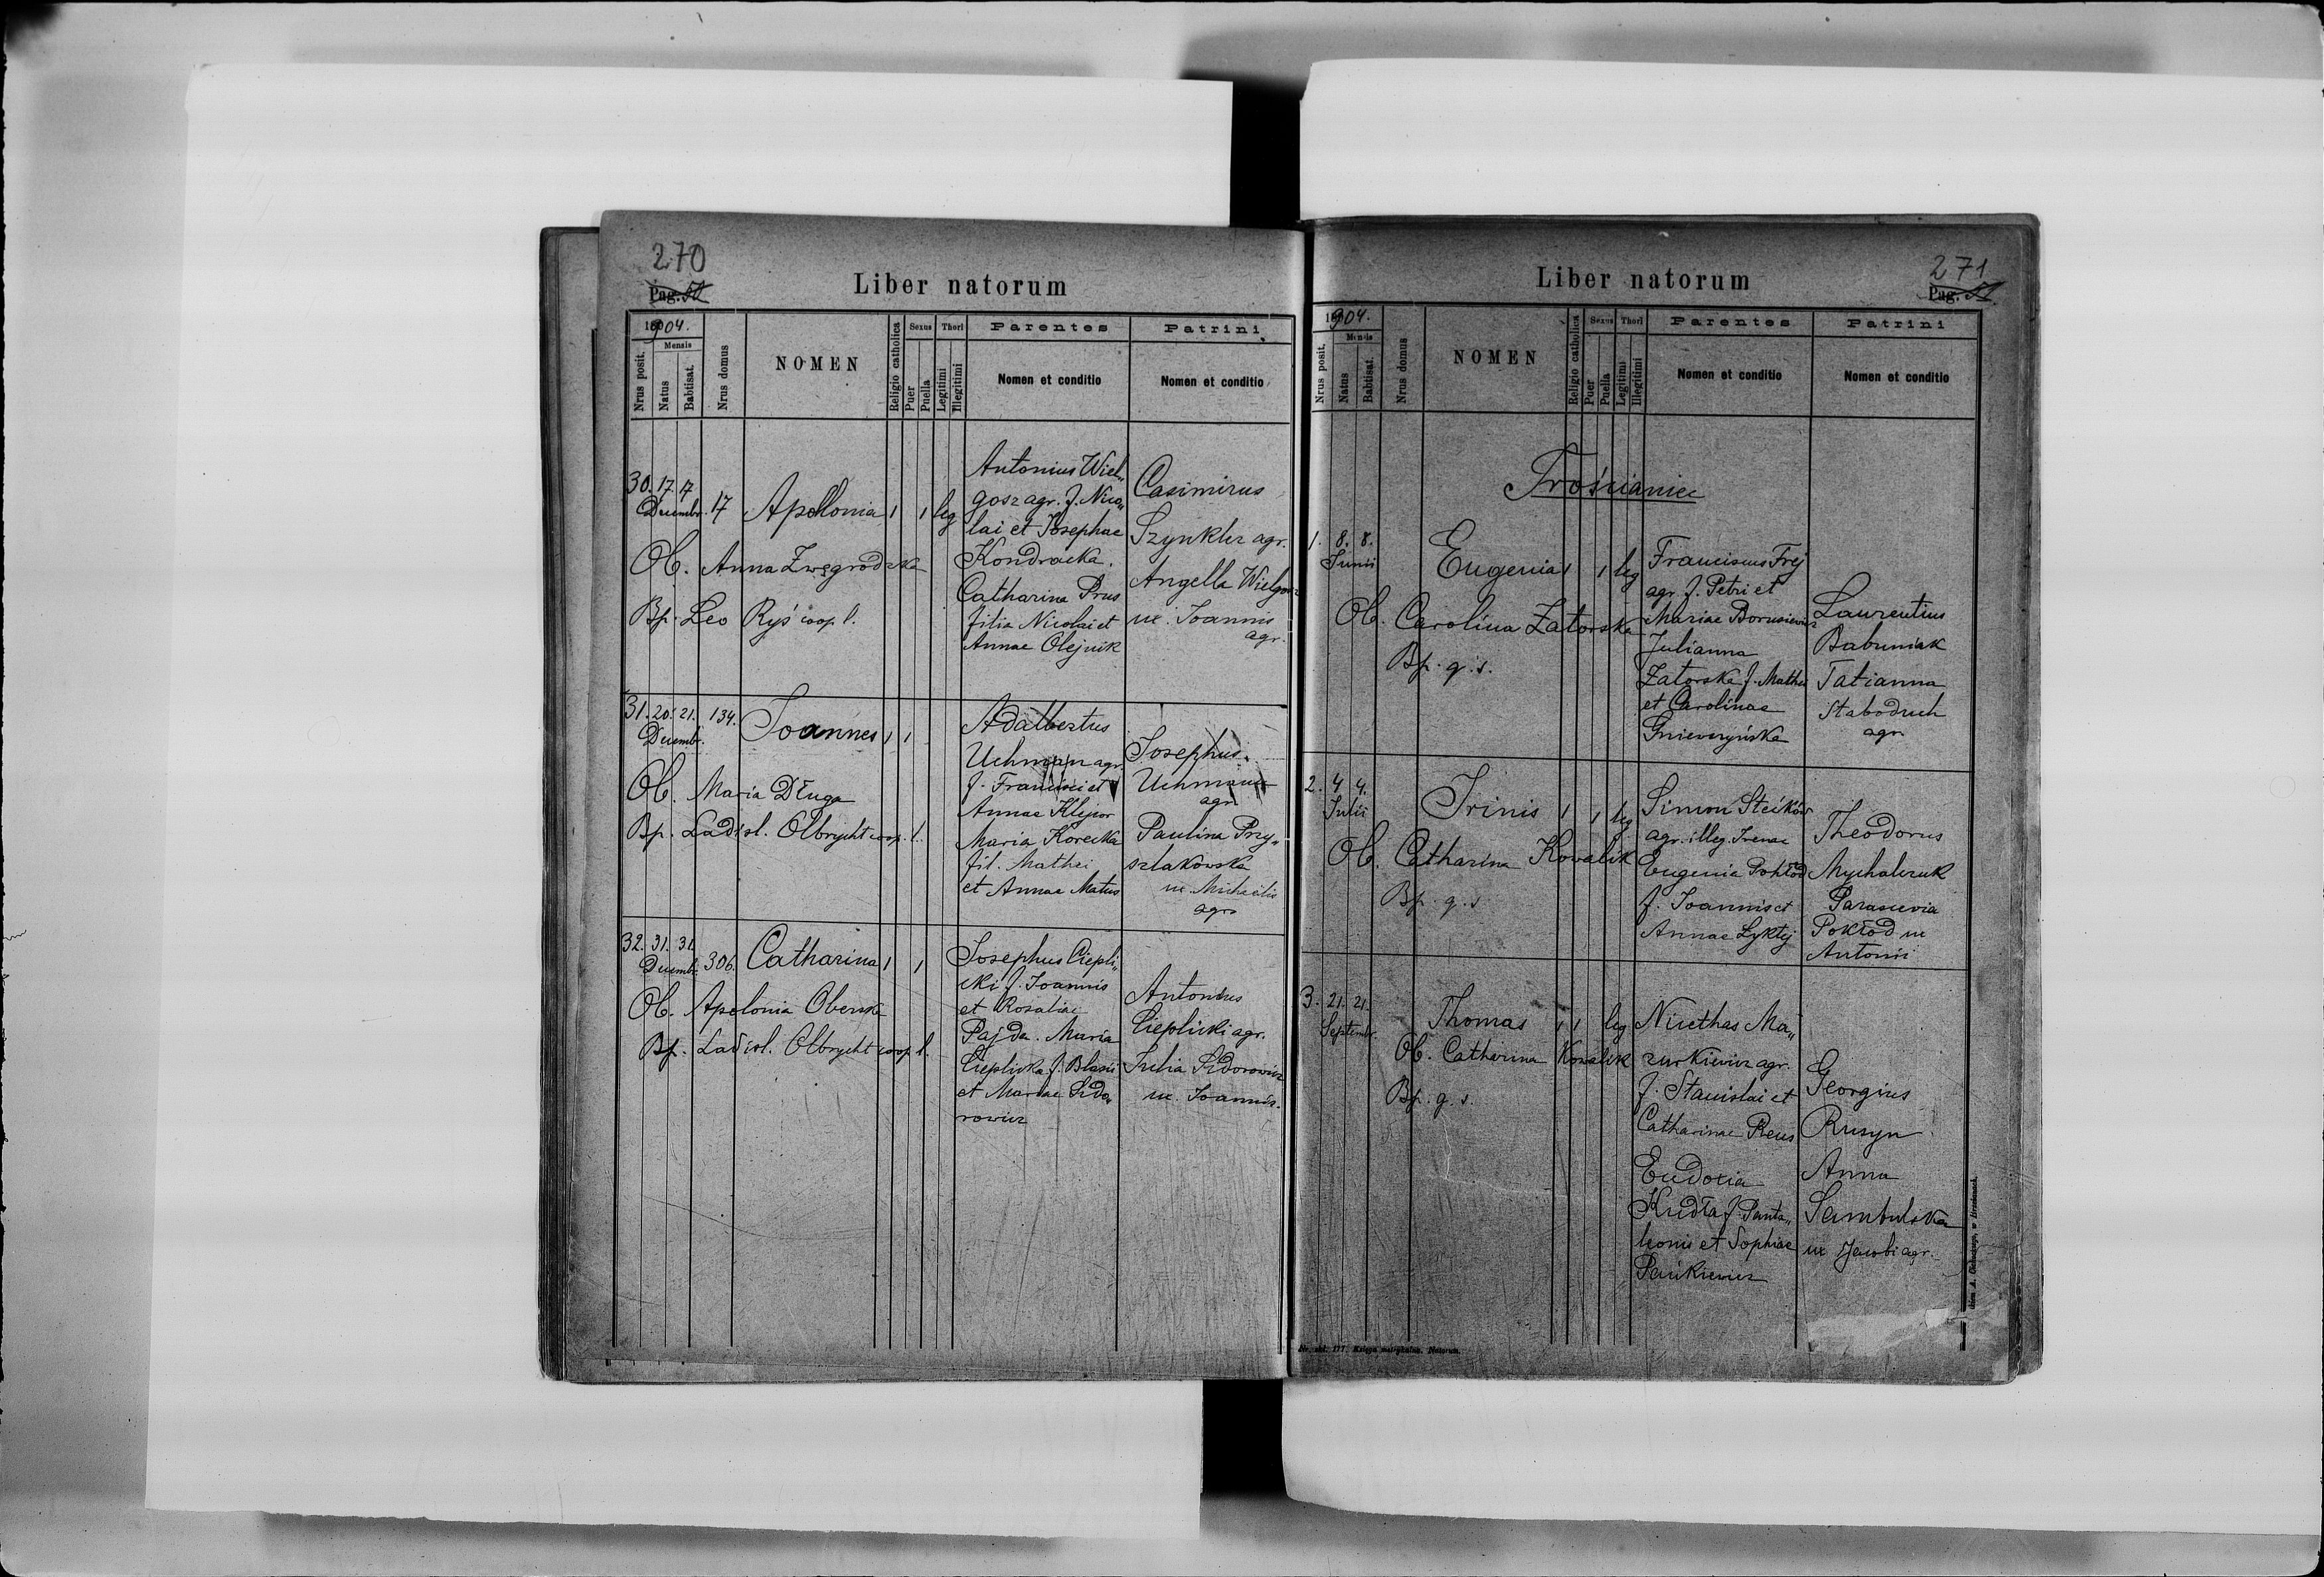 270
Pag. 50
Liber natorum
1904.
Mensis
Nrus posit.
Natus
Babtisat.
Nrus domus
NOMEN
Religio catholica
Sexus
Puer
Puella
Thori
Legitimi
Illegitimi
Parentes
Nomen et conditio
Patrini
Nomen et conditio
30. 17. 17. Decembr. 17 Apollonia 1 1 leg
Ob. Anna Zwęgrodzka
Bp. Leo Ryś coop. l.
Antonius Wiel„
gosz agr. f. Nico„
lai et Josephae
Kondracka.
Catharina Prus
filia Nicolai et
Annae Olejnik
Casimirus
Szynkler agr.
Angella Wielgosz
ux. Joannis
agr.
31. 20. 21. Decembr. 134. Joannes 1 1
Ob. Maria Długa
Bp. Ladisl. Olbrycht coop. l.
Adalbertus
Uchman agr.
f. Francisci et
Annae Klejnor
Maria Korecka
fil. Mathei
et Annae Matus
Josephus
Uchman
agr.
Paulina Przy„
szlakowska
ux. Michaelis
agr.
32. 31. 31. Decemb. 306. Catharina 1 1
Ob. Apolonia Oberska
Bp. Ladisl. Olbrycht coop. l.
Josephus Ciepli„
cki f. Joannis
et Rosaliae
Pajda. Maria
Cieplicka f. Blasii
et Mariae Sido„
rowicz
Antonius
Cieplicki agr.
Julia Sidorowicz
ux. Joannis.
Liber natorum
271
Pag. 51.
1904.
Mensis
Nrus posit.
Natus
Babtisat.
Nrus domus
NOMEN
Religio catholica
Sexus
Puer
Puella
Thori
Legitimi
Illegitimi
Parentes
Nomen et conditio
Patrini
Nomen et conditio
Trościaniec
1. 8. 8. Junii Eugenia 1 1 leg
Ob. Carolina Zatorska
Bp. q. s.
Franciscus Frej
agr. f. Petri et
Mariae Borusiewicz
Julianna
Zatorska f. Mathei
et Carolinae
Gniewczyńska
Laurentius
Babuniak
Tatianna
Stabodruch
agr.
2. 4. 4. Julii Irinis 1 1 leg
Ob. Catharina Kowalik
Bp. q. s
Simon Steików
agr. illeg. Irenae
Eugenia Pokłod
f. Joannis et
Annae Lyktej
Theodorus
Mychalczuk
Parascevia
Pokłod ux
Antonii
3. 21. 21. Septembr. Thomas 1 1 leg
Ob. Catharina Kowalik
Bp. q. s.
Nicethas Ma„
zurkiewicz agr.
f. Stanislai et
Catharinae Reus
Eudocia
Kudła f. Panta„
leonis et Sophiae
Pańkiewicz
Georgius
Rusyn
Anna
Sambulska
ux Jacobi agr.
Nr. skł. 177. Księga metrykalna. Natorum.